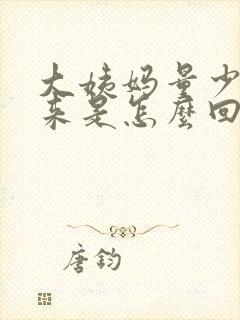 大姨妈量少
来是怎麼回
唐钧